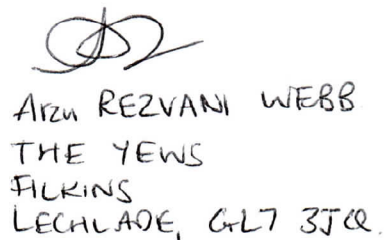 Arzu REZVANI WEBB
THE YEWS
FILKINS
LECHLADE, GL7 3JQ.